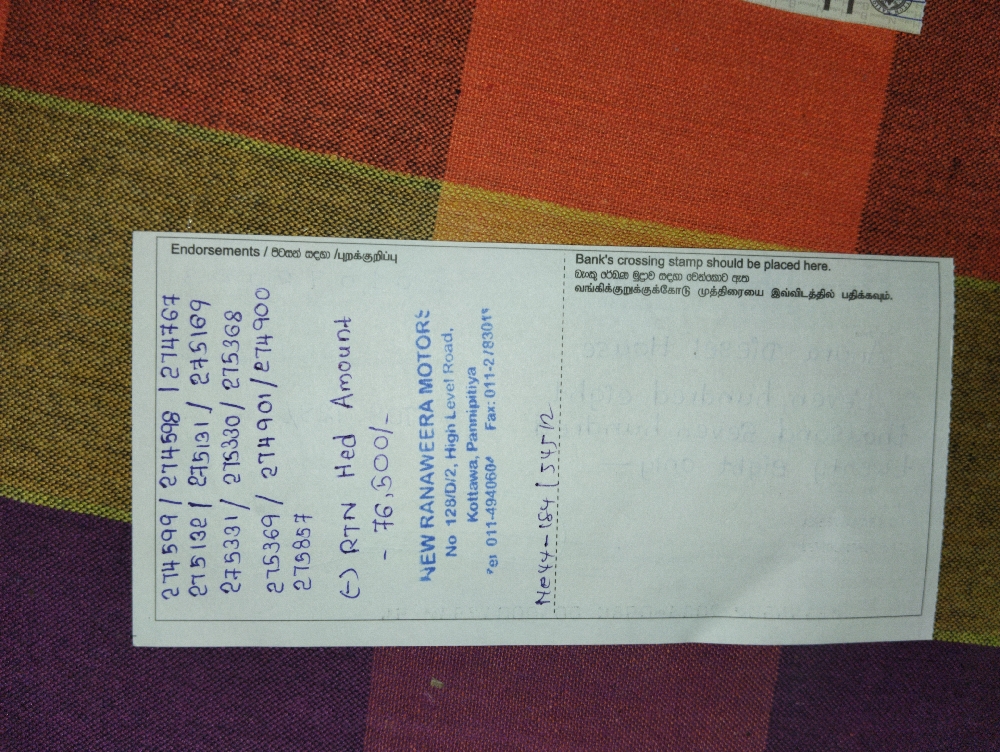 Endorsements / පිටසන් සඳහා /புறக்குறிப்பு
274599/274598/274767
275132/275131/275169
275331/275330/275368
275369/274901/274900
275857
(-) RTN Hed Amount
- 76,500/-
NEW RANAWEERA MOTORS
No 128/D/2, High Level Road,
Kottawa, Pannipitiya
Tel 011-494060 Fax: 011-278301
Bank's crossing stamp should be placed here.
வங்கிக்குறுக்குக்கோடு முத்திரையை இவ்விடத்தில் பதிக்கவும்.